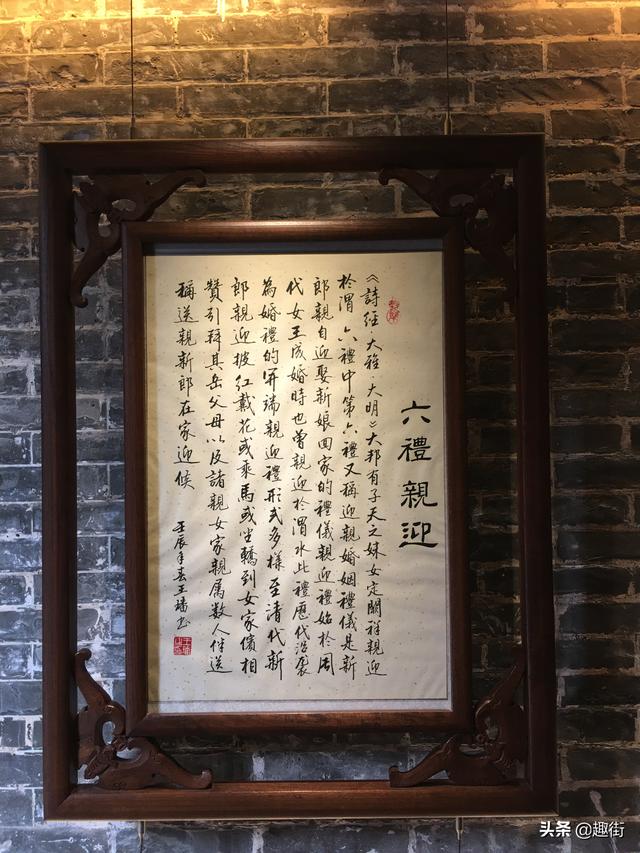 六禮親迎
《詩經 大雅 大明》大邦有子天之妹女定闕祥親迎
於渭 六禮中第六禮又稱迎親婚姻禮儀是新
郎親自迎娶新娘回家的禮儀親迎禮始於周
代女王成婚時也曾親迎於渭水此禮歷代沿襲
為婚禮的開端親迎禮形式多樣至清代新
郎親迎披紅戴花或乘馬或坐轎到女家儐相
贊引拜其岳父母以及諸親女家親屬數人伴送
稱送親新郎在家迎候
壬辰年春王
头条 @趣街